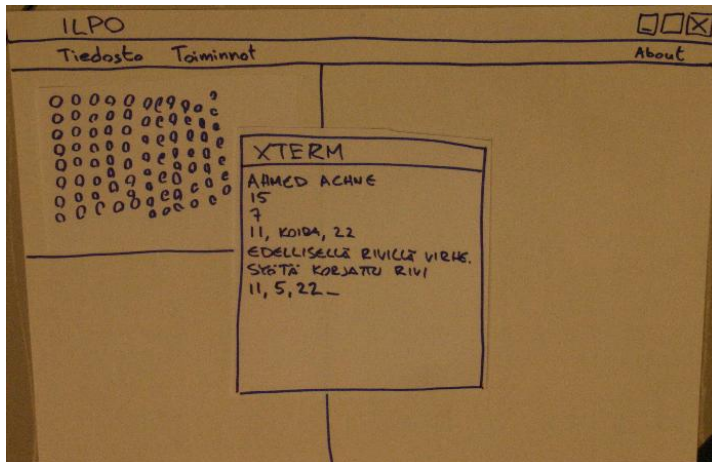 ILPO
Tiedosto Toiminnot About
XTERM
AHMED ACHNE
15
7
11, KOIRA, 22
EDELLISELLÄ RIVILLÄ VIRHE.
SYÖTÄ KORJATTU RIVI
11, 5, 22_